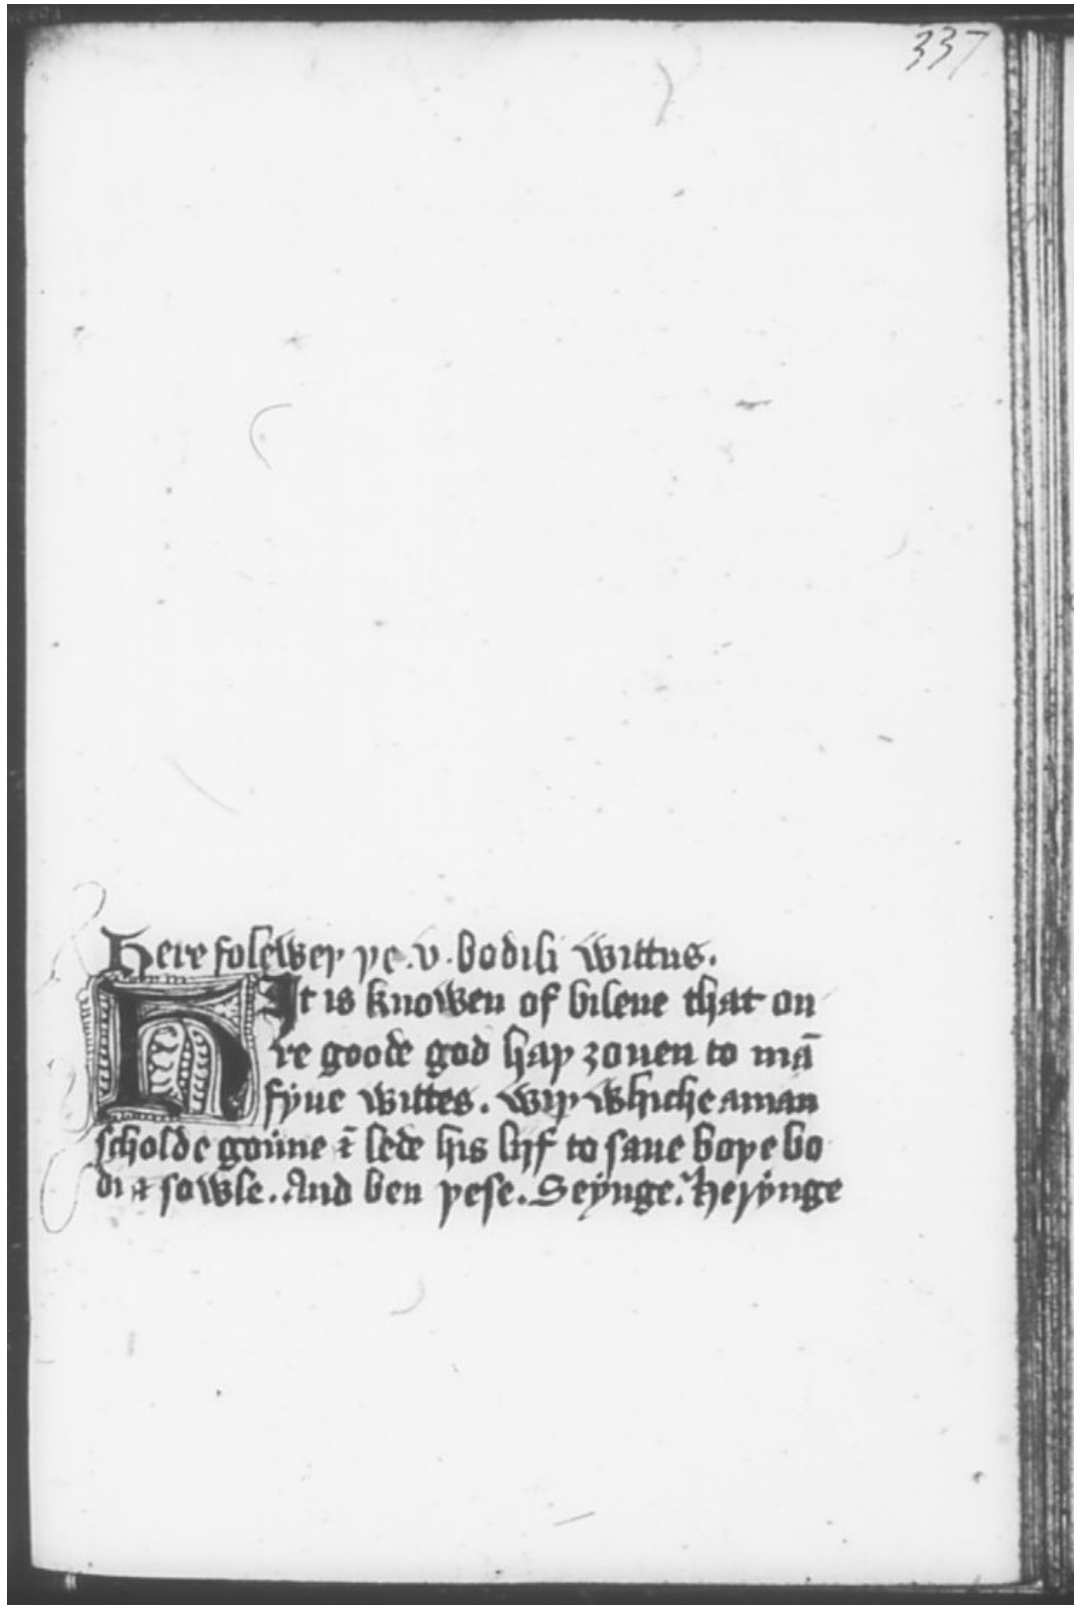 337
Here foleweþ þe .v. bodili wittus.
H It is knowen of bileue that ou
re goode god haþ ȝouen to mā
fyue wittes. wiþ whiche a man
scholde gouūne ⁊ lede his lyf to saue boþe bo
di ⁊ sowle. And ben þese. Seynge. herynge